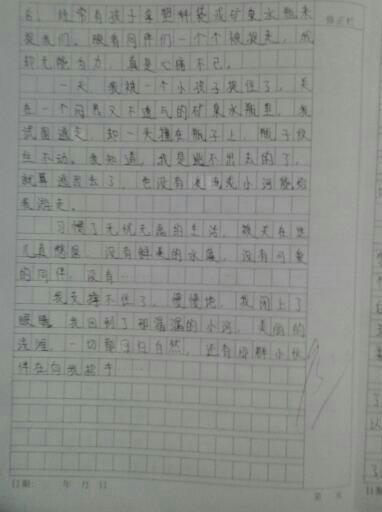 自：经常有孩子拿塑料袋或矿泉水瓶来
捉我们。眼看同伴们一个个被捉走，我
却无能为力，真是心痛不已。
一天，我被一个小孩子捉住了，关
在一个闷热又不透气的矿泉水瓶里。我
试图逃走，却一头撞在瓶子上，瓶子纹
丝不动。我知道，我是逃不出去的了，
就算逃出去了，也没有清澈小河能给
我游走。
习惯了无忧无虑的生活，被关在这
儿真憋屈。没有鲜美的水藻，没有可爱
的同伴，没有……
我支撑不住了，慢慢地，我闭上了
眼睛。我回到了那潺潺的小河，美丽的
浅滩，一切都归自然，还有那群小伙
伴在向我招手……
日期： 年 月 日
第 页